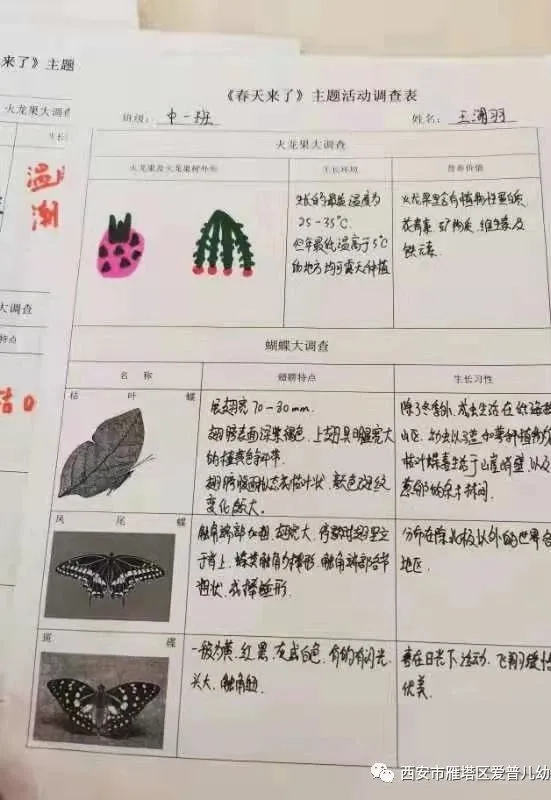 来了》主题
火龙果大调查
生长
温
潮
大调查
特点
《春天来了》主题活动调查表
班级: 中一班
姓名: 王浦羽
火龙果大调查
火龙果及火龙果树外形
生长环境
营养价值
生长的最益温度为
25-35℃.
但年最低温高于5℃
的地方均可露天种植
火龙果里含有植物性蛋白质,
花青素、矿物质、维生素及
铁元素.
蝴蝶大调查
名 称
翅膀特点
生长习性
枯 叶 蝶
展翅宽70-30mm.
翅膀表面深紫褐色,上翅具明显宽大
的橙黄色斜带.
翅膀腹面拟态成枯叶状,
变化颇大.
除了冬季外,成虫生活在低海拔
山区,幼虫以
枯叶蝶喜生活于山崖峭壁,以及
葱郁的杂木林间.
凤 尾 蝶
触角端部加粗,翅宽大,停歇时翅竖立
于背上.蝶类触角为棒形,触角端部各节
粗状,成棒锤形.
分布在除北极以外的世界各
地区.
斑 蝶
一般为黄、红、黑、灰或白色,有的有闪光.
头大,触角细.
喜在日光下活动,飞翔缓慢
优美.
西安市雁塔区爱普儿幼